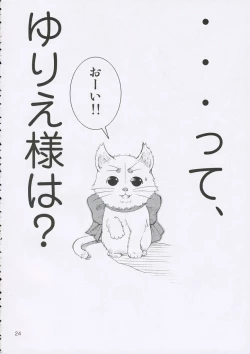 ・・・って、
おーい!!
ゆりえ様は?
24